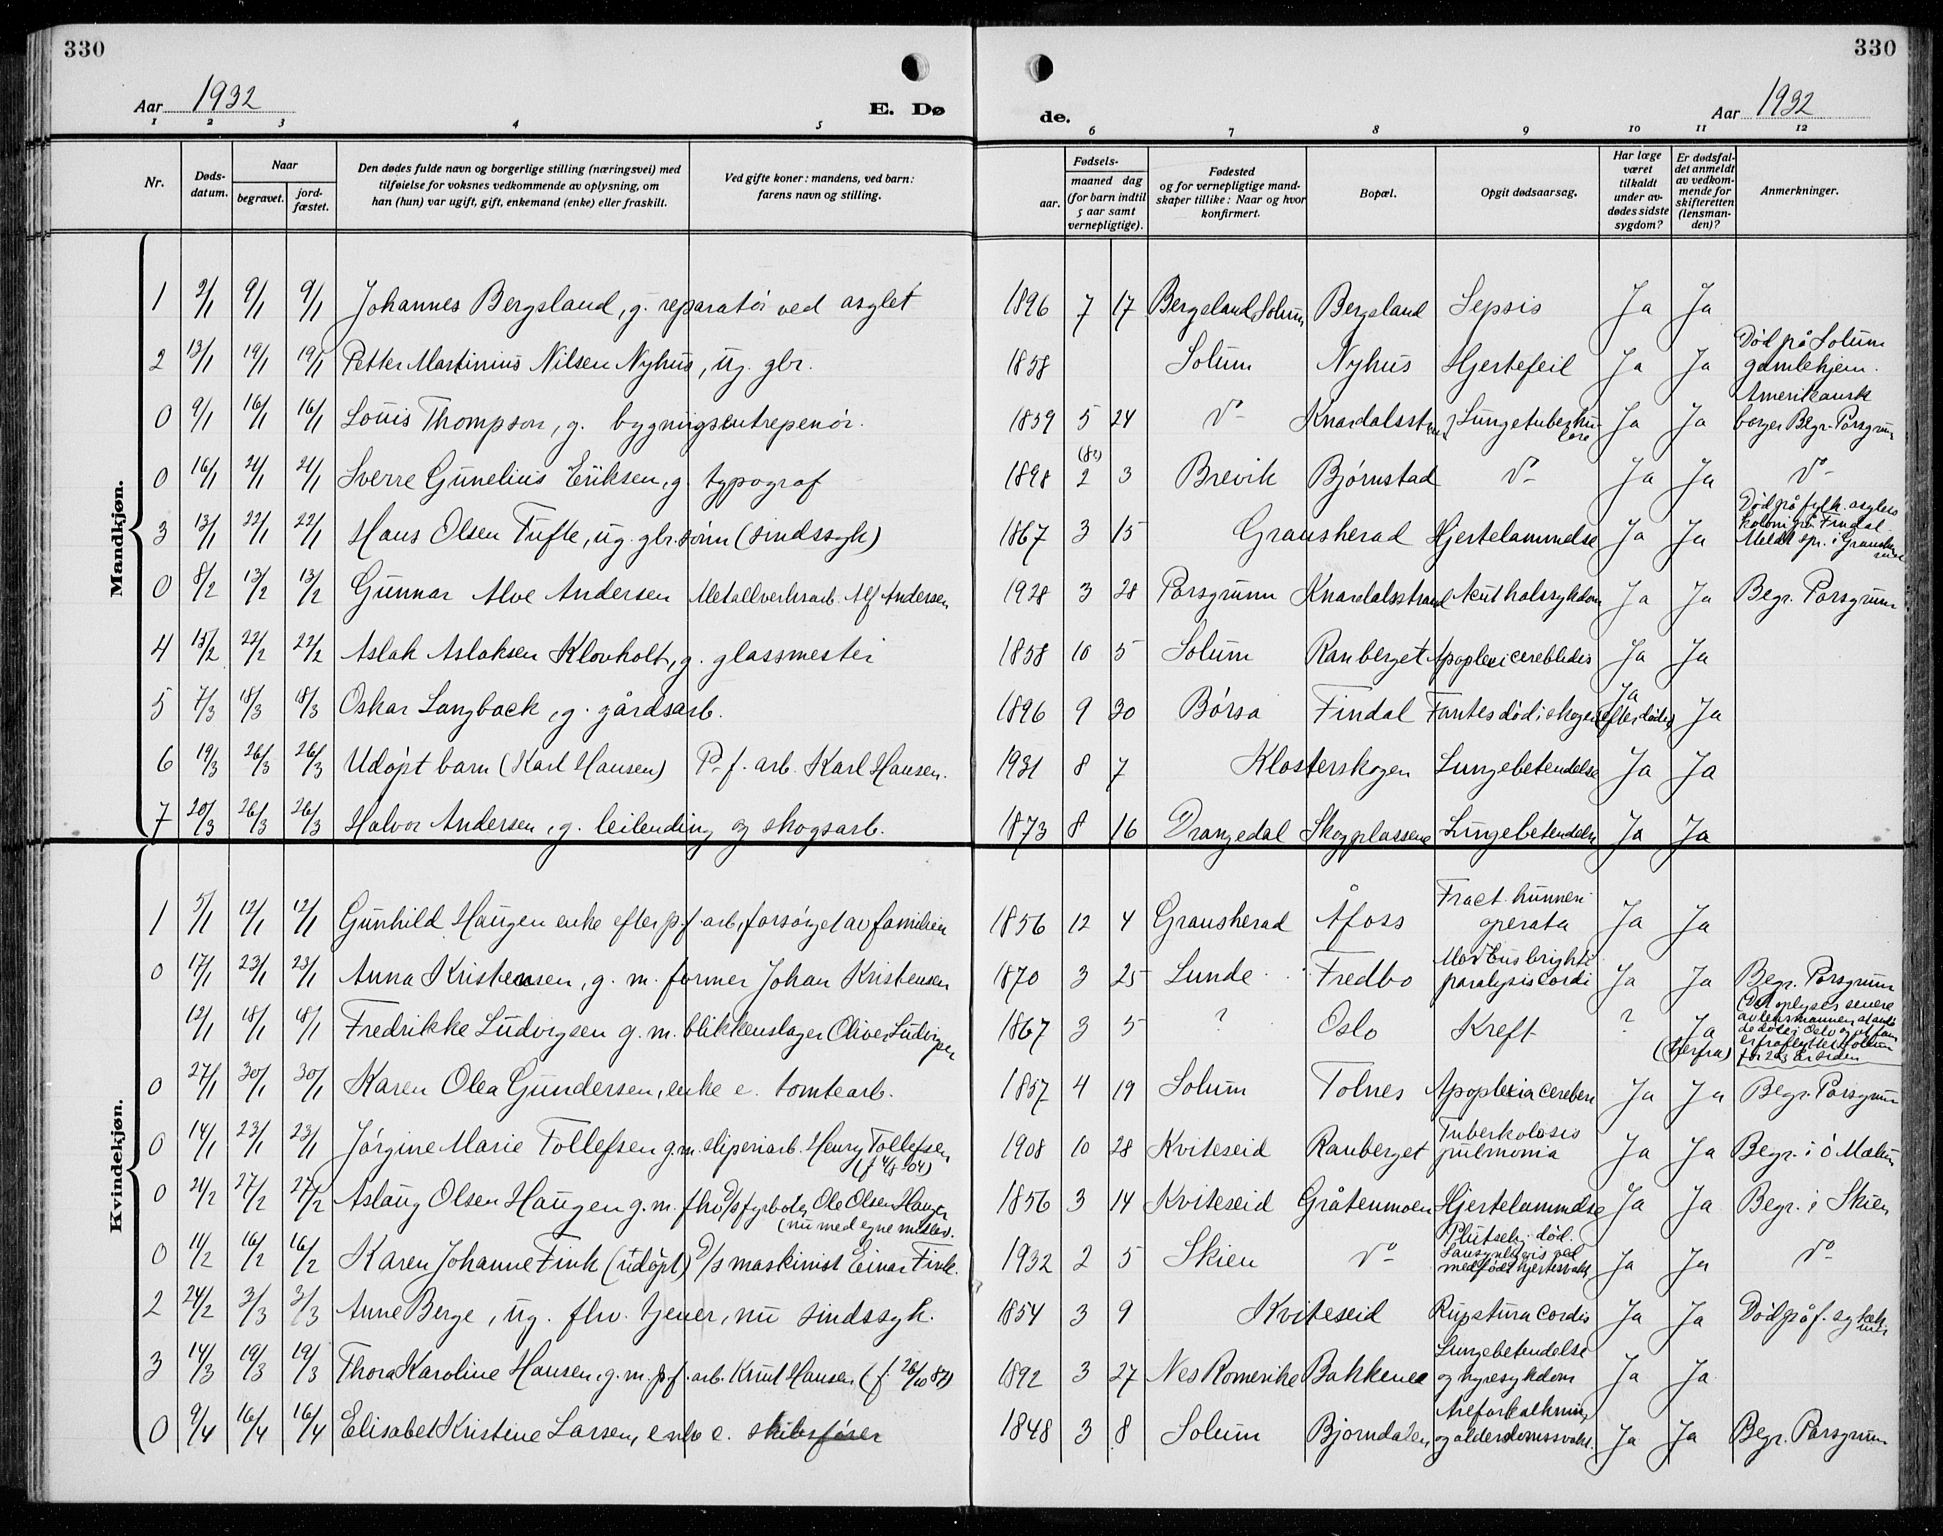 330
330
Aar 1932
E. Dø
de.
Aar 1932
1 2 3 4 5 6 7 8 9 10 11 12
Nr.
Døds-
datum.
Naar
begravet.
jord-
fæstet.
Den dødes fulde navn og borgerlige stilling (næringsvei) med
tilføielse for voksnes vedkommende av oplysning, om
han (hun) var ugift, gift, enkemand (enke) eller fraskilt.
Ved gifte koner: mandens, ved barn:
farens navn og stilling.
Fødsels-
aar.
maaned dag
(for barn indtil
5 aar samt
vernepligtige).
Fødested
og for vernepligtige mand-
skaper tillike: Naar og hvor
konfirmert.
Bopæl.
Opgit dødsaarsag.
Har læge
været
tilkaldt
under av-
dødes sidste
sygdom?
Er dødsfal-
det anmeldt
av vedkom-
mende for
skifteretten
(lensman-
den)?
Anmerkninger.
Mandkjøn.
1 2/1 9/1 9/1 Johannes Bergsland, g. reparatør ved asylet 1896 7 17 Bergsland Solum Bergsland Sepsis Ja Ja
2 13/1 19/1 19/1 Petter Martinius Nilsen Nyhus, ug. gbr. 1858 Solum Nyhus Hjertefeil Ja Ja Død på Solum
gamlehjem.
0 9/1 16/1 16/1 Louis Thompson, g. bygningsentrepenør. 1859 5 24 Do Knardalsstrand Lungetuberku-
lose Ja Ja Amerikansk
borger Begr. Porsgrunn
0 16/1 21/1 21/1 Sverre Gunelius Eriksen, g. typograf 1898 2 3 Brevik Bjørnstad Do Ja Ja Do
3 13/1 22/1 22/1 Hans Olsen Tufte, ug. gbr. sønn (sindssyk) 1867 3 15 Gransherad Hjertelammelse Ja Ja Død på fylk. asylets
koloni på Findal.
Meldt spr. i Gransherad
0 8/2 13/2 13/2 Gunnar Alve Andersen Metallverksarb. Alf Andersen 1928 3 28 Porsgrunn Knardalsstrand Akut halssykdom Ja Ja Begr. Porsgrunn
4 15/2 22/2 22/2 Aslak Aslaksen Klovholt, g. glassmester 1858 10 5 Solum Ranberget Apoplexi cerebledis Ja Ja
5 7/3 18/3 18/3 Oskar Langback, g. gårdsarb. 1896 9 30 Børsa Findal Fantes død i skogen Ja
efter døden Ja
6 19/3 26/3 26/3 Udøpt barn (Karl Hansen) P. f. arb. Karl Hansen. 1931 8 7 Klosterskogen Lungebetendelse Ja Ja
7 20/3 26/3 26/3 Halvor Andersen, g. leilending og skogsarb. 1873 8 16 Drangedal Skogplassene Lungebetendelse Ja Ja
Kvindekjøn.
1 5/1 12/1 12/1 Gunhild Haugen enke efter p.f. arb, forsørget av familien 1856 12 4 Gransherad Åfoss Fract. hunneri
operata Ja Ja
0 17/1 23/1 23/1 Anna Kristensen, g. m. former Johan Kristensen 1870 3 25 Lunde Fredbo Morbus brighti
paralysis cordi Ja Ja Begr. Porsgrunn
12/1 18/1 18/1 Fredrikke Ludvigsen g. m. blikkenslager Oliver Ludvigsen 1867 3 5 ? Oslo Kreft ? Ja
(herfra) Det oplyses senere
av lensmannen at
døde i Oslo og at
er fraflyttet Solum
for år siden
0 27/1 30/1 30/1 Karen Olea Gundersen, enke e. tomtearb. 1857 4 19 Solum Tolnes Apoplexia cerebri Ja Ja Begr. Porsgrunn
0 14/1 23/1 23/1 Jørgine Marie Tollefsen g. m. sliperiarb. Henry Tollefsen
(f 4/8 04) 1908 10 28 Kviteseid Ranberget Tuberkolosis
pulmonia Ja Ja Begr. i ø Mælum
0 21/2 27/2 27/2 Aslaug Olsen Haugen g. m. fhv. D/S fyrbøter Ole Olsen Haugen
(nu med egne midler. 1856 3 14 Kviteseid Gråtenmoen Hjertelammelse Ja Ja Begr. i Skien
0 11/2 16/2 16/2 Karen Johanne Fink (udøpt) D/S maskinist Einar Fink. 1932 2 5 Skien Do Plutselig død.
Sansynligvis ved
medfødt hjertesvakh. Ja Ja Do
2 24/2 3/3 3/3 Anne Berge, ug. fhv. tjener, nu sindssyk. 1854 3 9 Kviteseid Rupstura cordis Ja Ja Død på f. sykeh.
3 14/3 19/3 19/3 Thora Karoline Hansen, g. m. p.f. arb. Knut Hansen (f. 26/10 87) 1892 3 27 Nes Romerike Bakkenea Lungebetendelse
og nyresykdom Ja Ja
0 9/4 16/4 16/4 Elisabet Kristine Larsen, enke e. skibsfører 1848 3 8 Solum Bjørndalen Areforkalkning
og alderdomssvakh. Ja Ja Begr. Porsgrunn